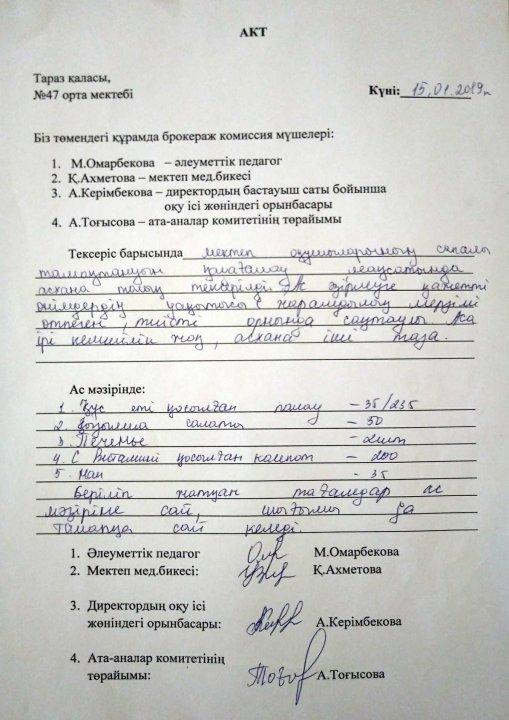 АКТ
Тараз қаласы,
№47 орта мектебі
Күні: 15.01.2019ж
Біз төмендегі құрамда брокераж комиссия мүшелері:
1. М.Омарбекова – әлеуметтік педагог
2. Қ.Ахметова – мектеп мед.бикесі
3. А.Керімбекова – директордың бастауыш саты бойынша
оқу ісі жөніндегі орынбасары
4. А.Тоғысова – ата-аналар комитетінің төрайымы
Тексеріс барысында мектеп оқушыларының сапалы
тамақтануын қадағалау мақсатында
асхана толық тексерілді. Ас әзірлеуге қажетті
өнімдердің уақытысы жарамдылық мерзімі
өтпеген, тиісті орнында сақтаулы. Аса
ірі кемшілік жоқ, асхана іші таза.
Ас мәзірінде:
1. Құс еті қосылған палау – 35/235
2. салаты – 50
3. Печенье – 2шт
4. С Витамині қосылған компот – 200
5. Нан – 35
Беріліп жатқан тағамдар ас
мәзіріне сай, шығымы да
талапқа сай келеді.
1. Әлеуметтік педагог М.Омарбекова
2. Мектеп мед.бикесі: Қ.Ахметова
3. Директордың оқу ісі
жөніндегі орынбасары: А.Керімбекова
4. Ата-аналар комитетінің
төрайымы: А.Тоғысова